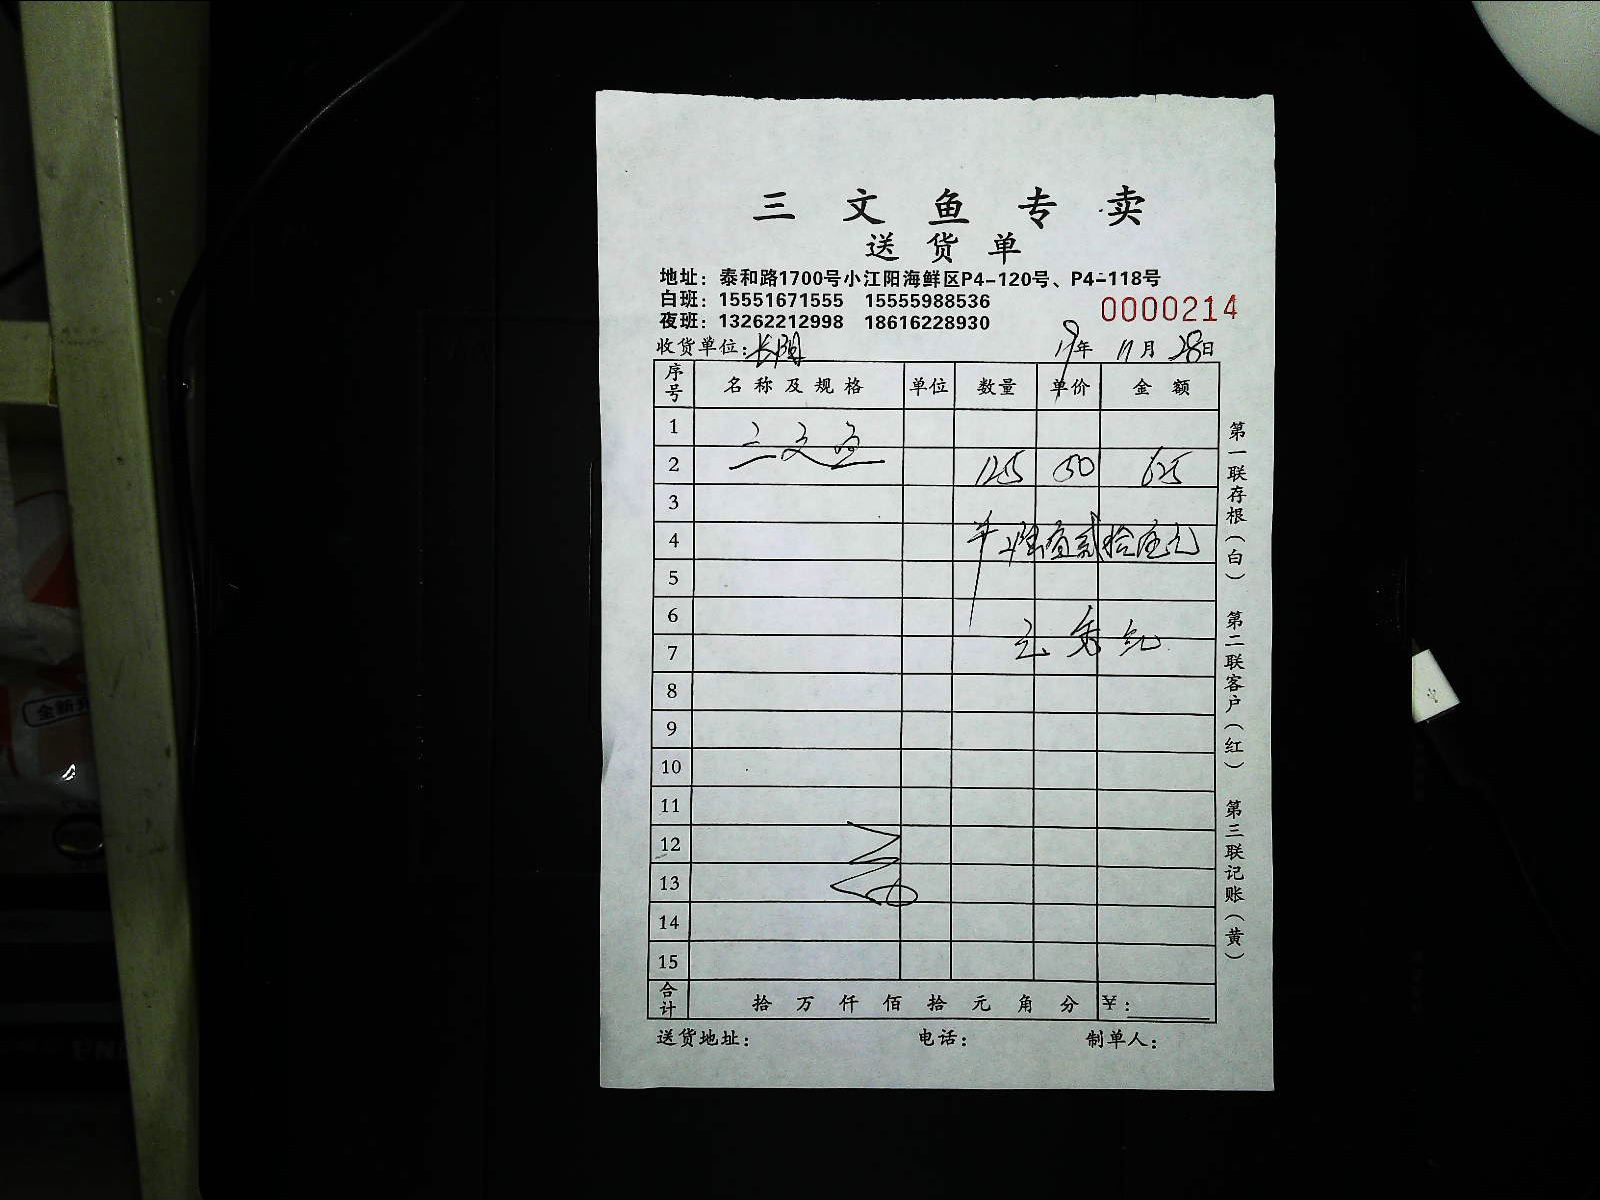 三文鱼专卖
送货单
地址：泰和路1700号小江阳海鲜区P4-120号、P4-118号
白班：15551671555 15555988536
夜班：13262212998 18616228930
0000214
收货单位：长阳 19年 11月 28日
序号 名称及规格 单位 数量 单价 金额
1
2 三文鱼 125 50 625
3
4 陆佰贰拾伍元
5
6
7
8
9
10
11
12
13
14
15
合计 拾 万 仟 佰 拾 元 角 分 ¥：
送货地址： 电话： 制单人：
第一联存根（白） 第二联客户（红） 第三联记账（黄）
全新升